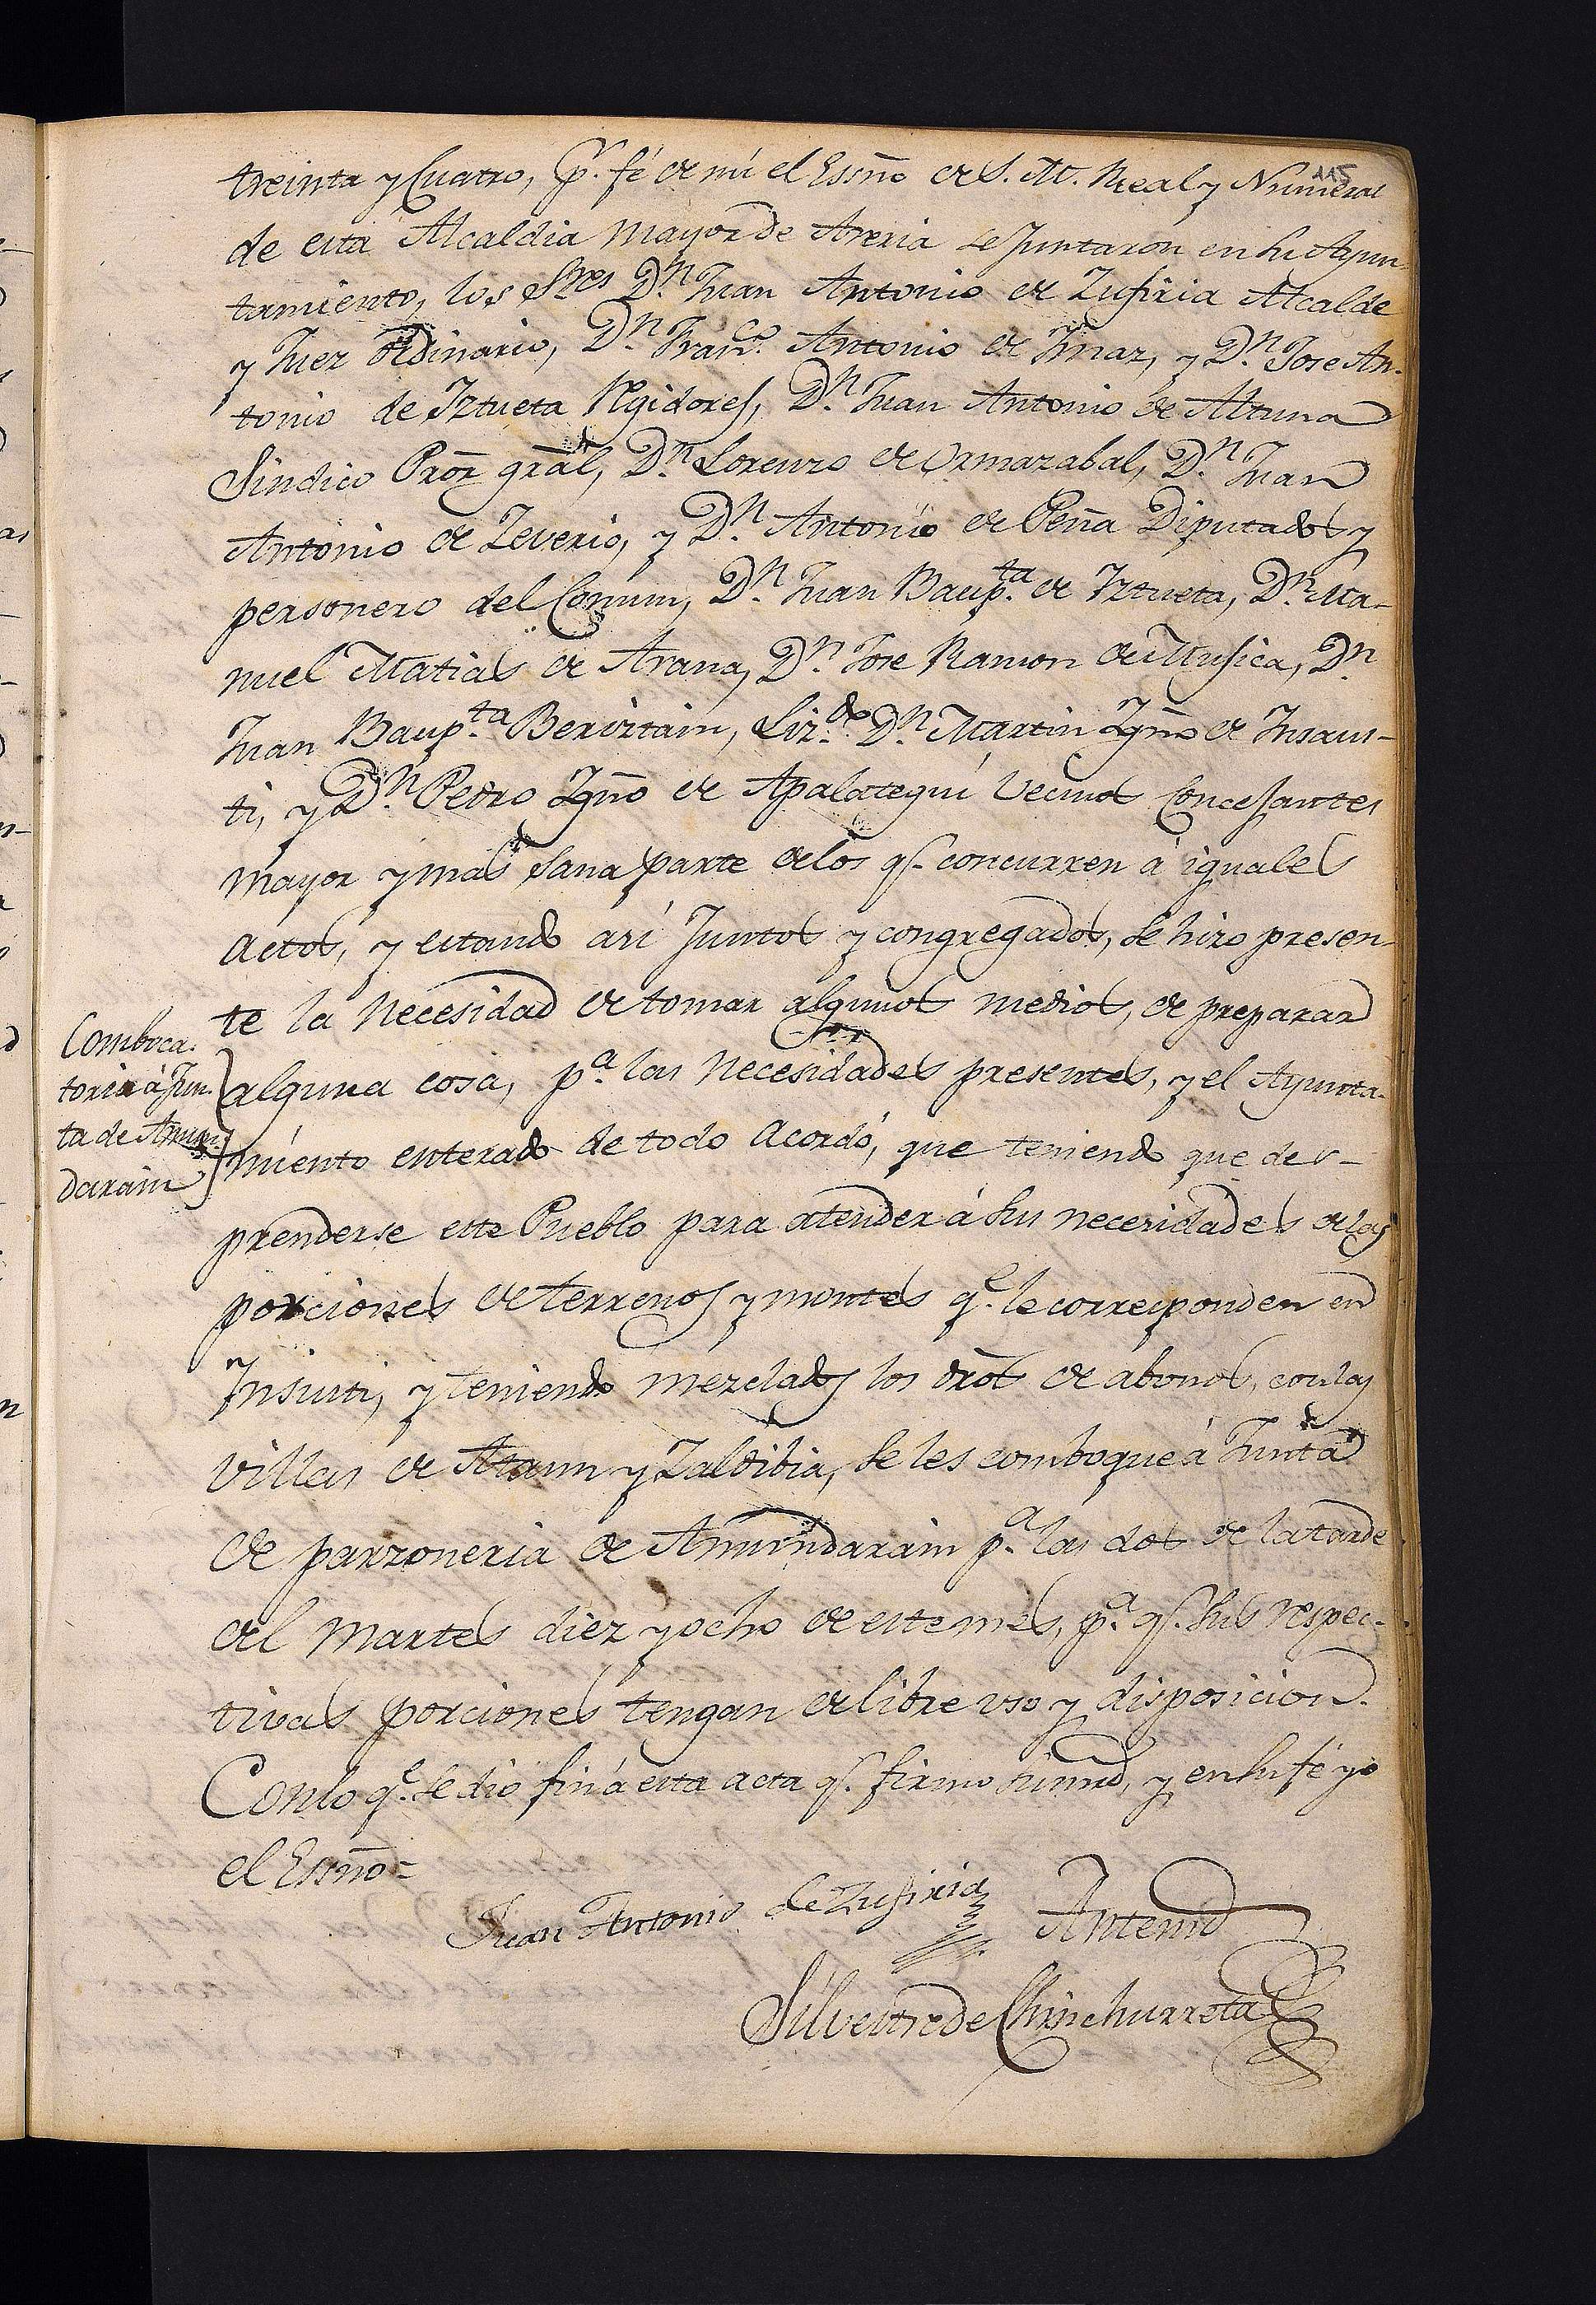 115
treinta y Cuatro, pr. fé de mi el Essño de S. M. Real y Numeral
de esta Alcaldia Mayor de Areria se Juntaron en su Ayun-
tamiento, los Sres Dn. Juan Antonio de Zufiria Alcalde
y Juez ordinario, Dn. Franco. Antonio de Ymaz, y Dn. Jose An-
tonio de Yztueta Regidores, Dn. Juan Antonio de Altuna
Sindico Pror gral, Dn. Lorenzo de Ormazabal, Dn. Juan
Antonio de Zeverio, y Dn. Antonio de Peña Diputados y
personero del Comun, Dn. Juan Baupta. de Yztueta, Dn. Ma-
nuel Matias de Arana, Dn. Jose Ramon de Musica, Dn.
Juan Baupta. Beriztain, Lizdo. Dn. Martin Ygño de Insaus-
ti, y Dn. Pedro Ygño de Apalategui Vecinos Concejantes
mayor y mas sana parte de los qe. concurren á iguales
actos, y estando asi Juntos y congregados, se hizo presen-
te la Necesidad de tomar algunos medios, de preparar
Comboca-
toria á Jun-
ta de Amun-
darain
alguna cosa, pa. las Necesidades presentes, y el Ayunta-
miento enterado de todo acordó, que teniendo que des-
prenderse este Pueblo para atender á sus necesidades de las
porciones de terrenos y montes qe. le corresponden en
Insusti, y teniendo mezclados los dros de abonos, con las
villas de Ataun y Zaldibia, se les comboque á Junta
de parzoneria de Amundarain pa. las dos de la tarde
del Martes diez y ocho de este mes, pa. qe. sus respec-
tivas porciones tengan de libre uso y disposicion.
Con lo qe. se dió fin á esta acta qe. firmo su md, y en su fé yo
el Essño=
Juan Antonio de Zufiria
Antemi
Silvestre de Chinchurreta